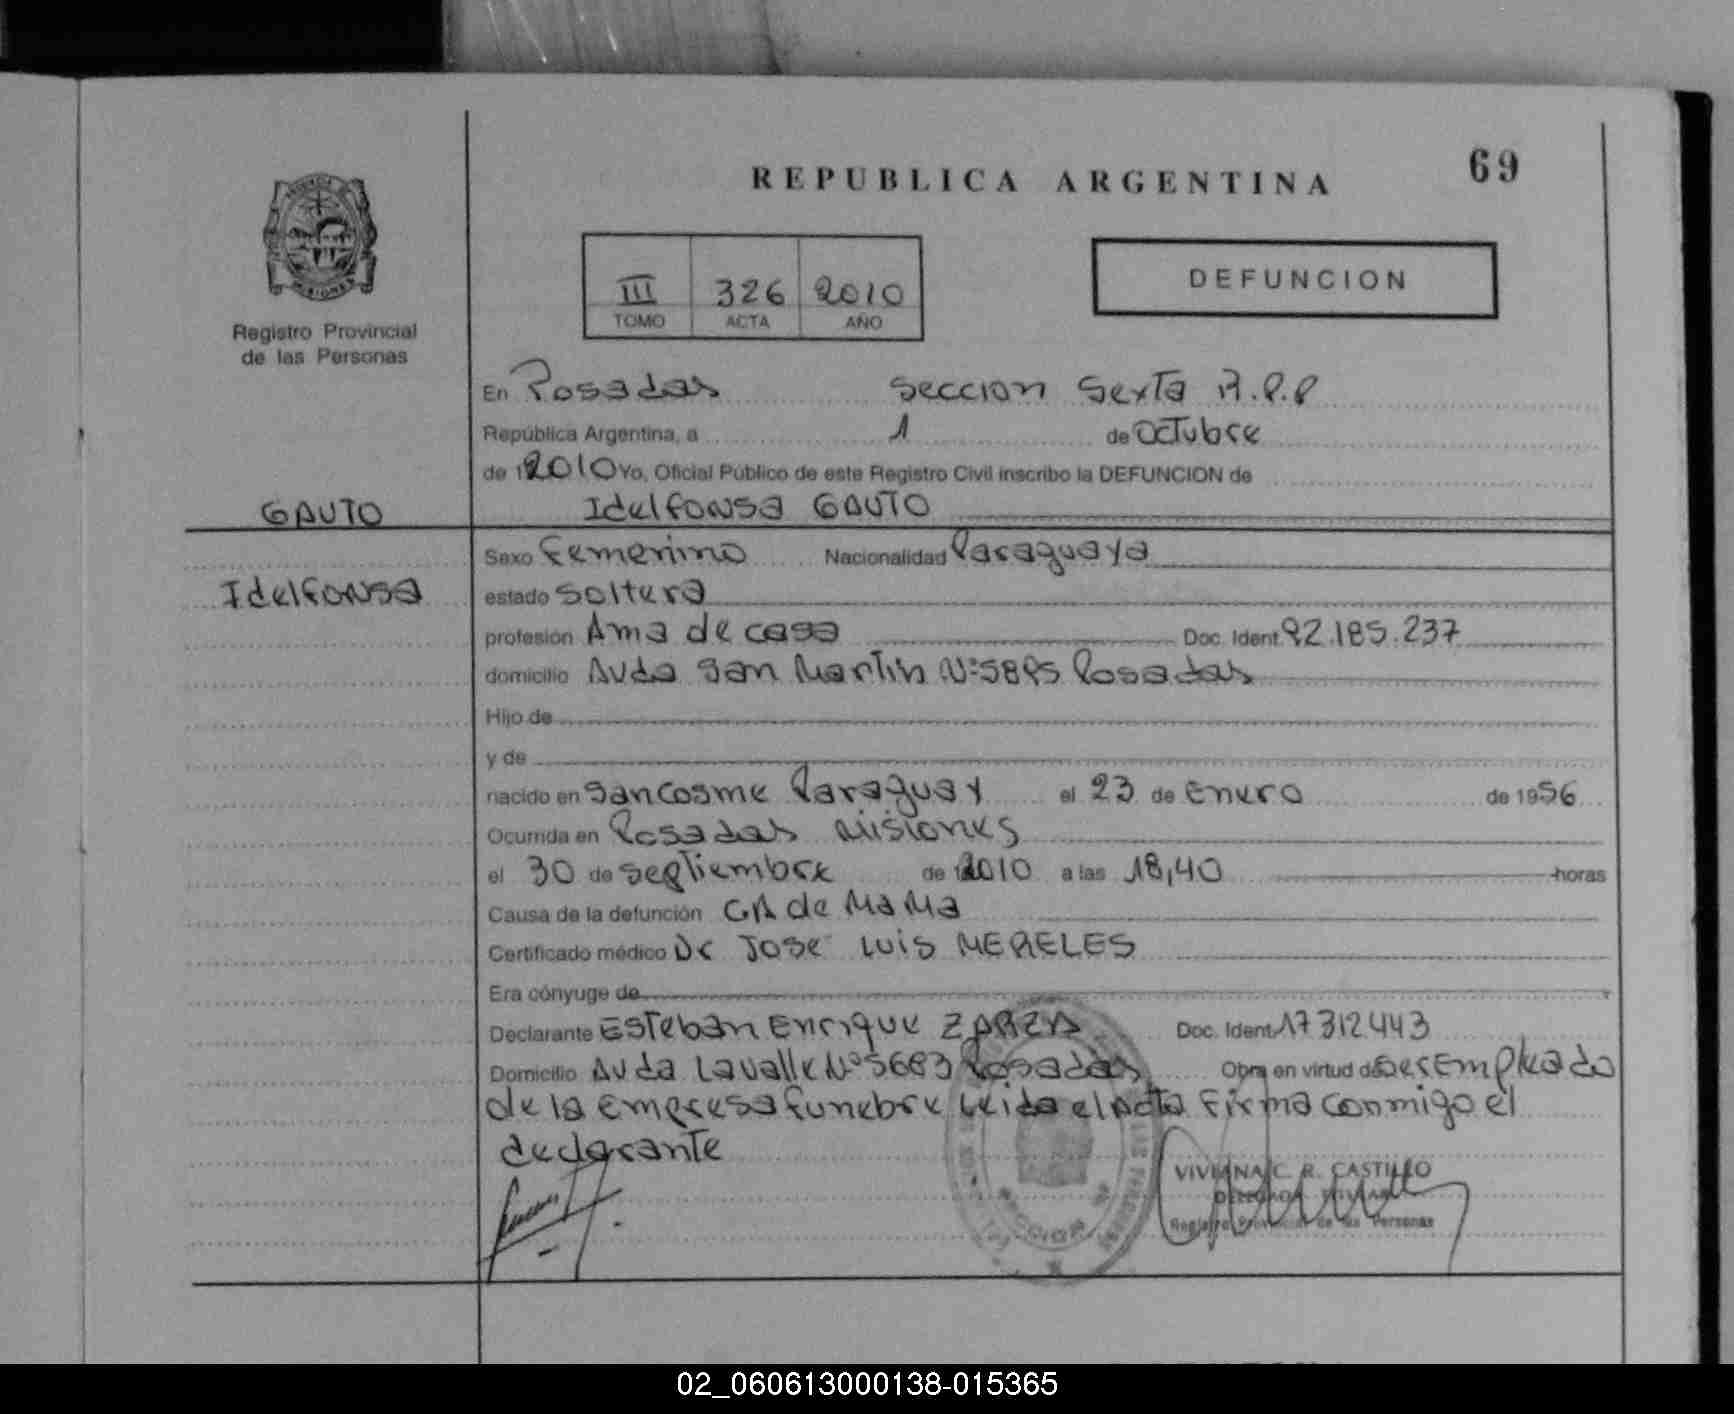 REPUBLICA ARGENTINA 69
III 326 2010
TOMO ACTA AÑO
DEFUNCION
Registro Provincial
de las Personas
En Posadas Seccion Sexta R.P.P
República Argentina, a 1 de Octubre
de 2010 Yo, Oficial Público de este Registro Civil inscribo la DEFUNCION de
GAUTO Idelfonsa GAUTO
Sexo Femenino Nacionalidad Paraguaya
Idelfonsa estado Soltera
profesión Ama de casa Doc. Ident. 92.185.237
domicilio Avda San Martin Nº 5895 Posadas
Hijo de
y de
nacido en San Cosme Paraguay el 23 de Enero de 1956
Ocurrida en Posadas Misiones
el 30 de Septiembre de 2010 a las 18,40 horas
Causa de la defunción CA de MaMa
Certificado médico Dr Jose Luis MERELES
Era cónyuge de
Declarante Esteban Enrique Doc. Ident. 17312443
Domicilio Avda Lavalle Nº 5683 Posadas Obra en virtud de Ser Empleado
de la Empresa funebre Leida el Acta Firma conmigo el
declarante
VIVIANA C. R. CASTILLO
DELEGADA TITULAR
Registro Provincial de las Personas
02_060613000138-015365